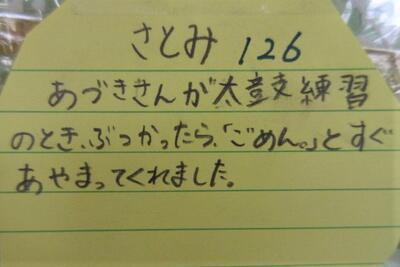 さとみ 126
あづきさんが太鼓練習
のとき、ぶつかったら、「ごめん。」とすぐ
あやまってくれました。